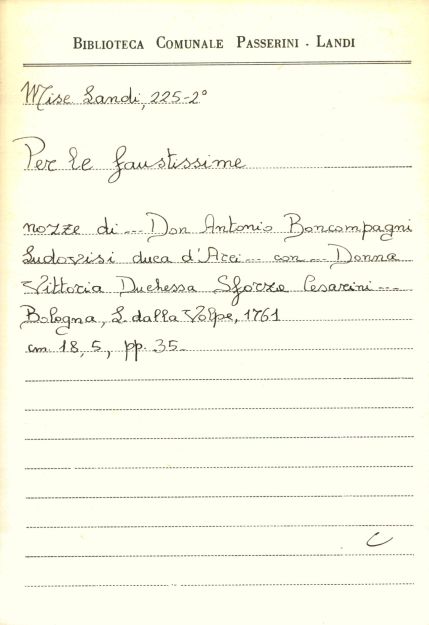 BIBLIOTECA COMUNALE PASSERINI - LANDI
Misc Landi, 225-2°
Per le faustissime
nozze di --- Don Antonio Boncompagni
Ludovisi duca d'Arci --- con --- Donna
Vittoria Duchessa Sforza Cesarini ---
Bologna, L. dalla Volpe, 1761
cm 18,5, pp. 35-
C